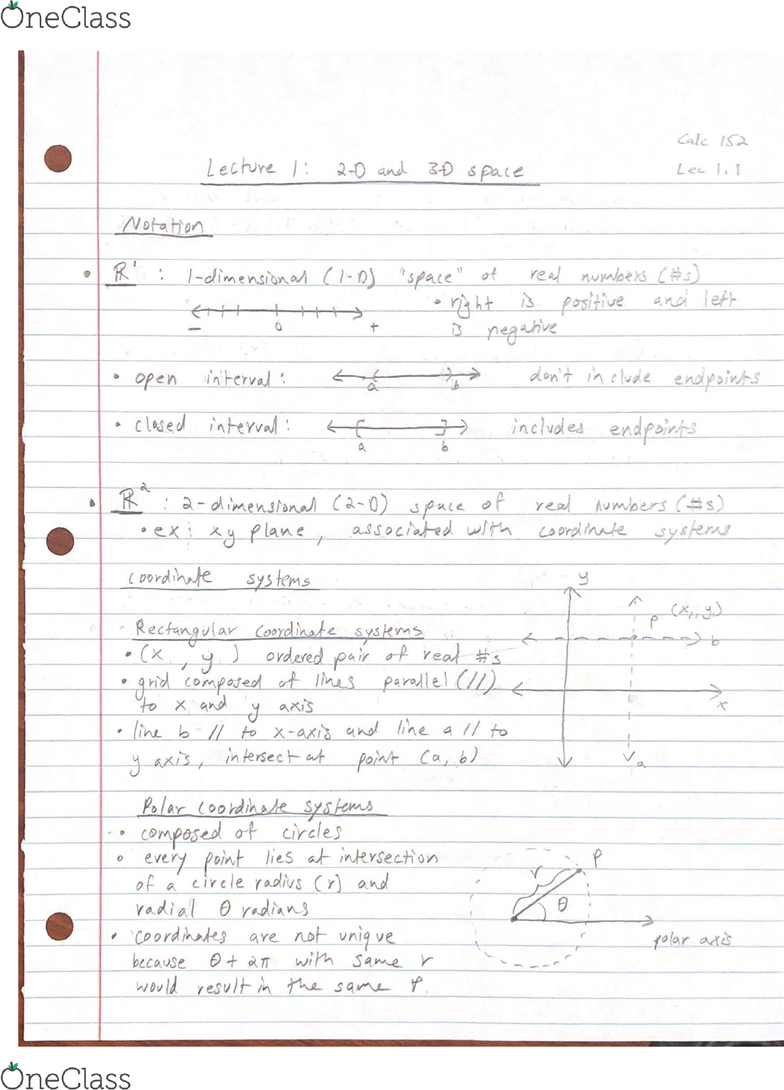 OneClass
Calc 152
Lecture 1: 2-D and 3-D space
Lec 1.1
Notation
• ℝ¹ : 1-dimensional (1-D) "space" of real numbers (#s)
• right is positive and left
− 0 + is negative
• open interval: a b don't include endpoints
• closed interval: a b includes endpoints
• ℝ² : 2-dimensional (2-D) space of real numbers (#s)
• ex: xy plane, associated with coordinate systems
Coordinate systems
y
P (x₁, y₁)
b
x
a
Rectangular coordinate systems
• (x , y) ordered pair of real #s
• grid composed of lines parallel (//)
to x and y axis
• line b // to x-axis and line a // to
y axis, intersect at point (a, b)
Polar coordinate systems
• composed of circles
• every point lies at intersection
of a circle radius (r) and
radial θ radians
• coordinates are not unique
because θ + 2π with same r
would result in the same P.
P
r
θ
polar axis
OneClass